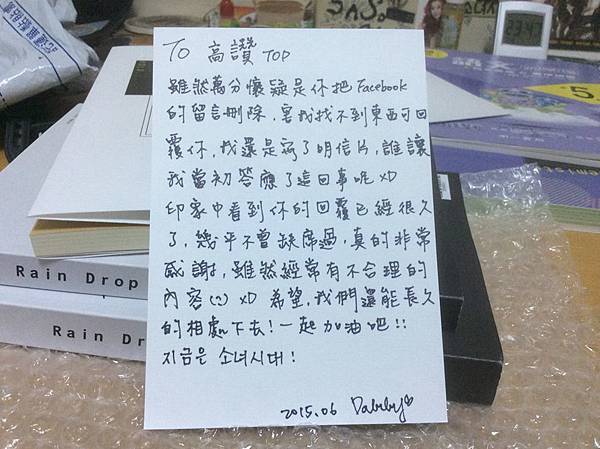 To 高讚 TOP
雖然萬分懷疑是你把 Facebook
的留言刪除，害我找不到東西可回
覆你，我還是寫了明信片，誰讓
我當初答應了這回事呢 XD
印象中看到你的回覆已經很久
了，幾乎不曾缺席過，真的非常
感謝，雖然經常有不合理的
內容(:) XD 希望，我們還能長久
的相處下去！一起加油吧!!
지금은 소녀시대!
2015.06 Dabeby♡
Rain Drop
Rain Dr
5